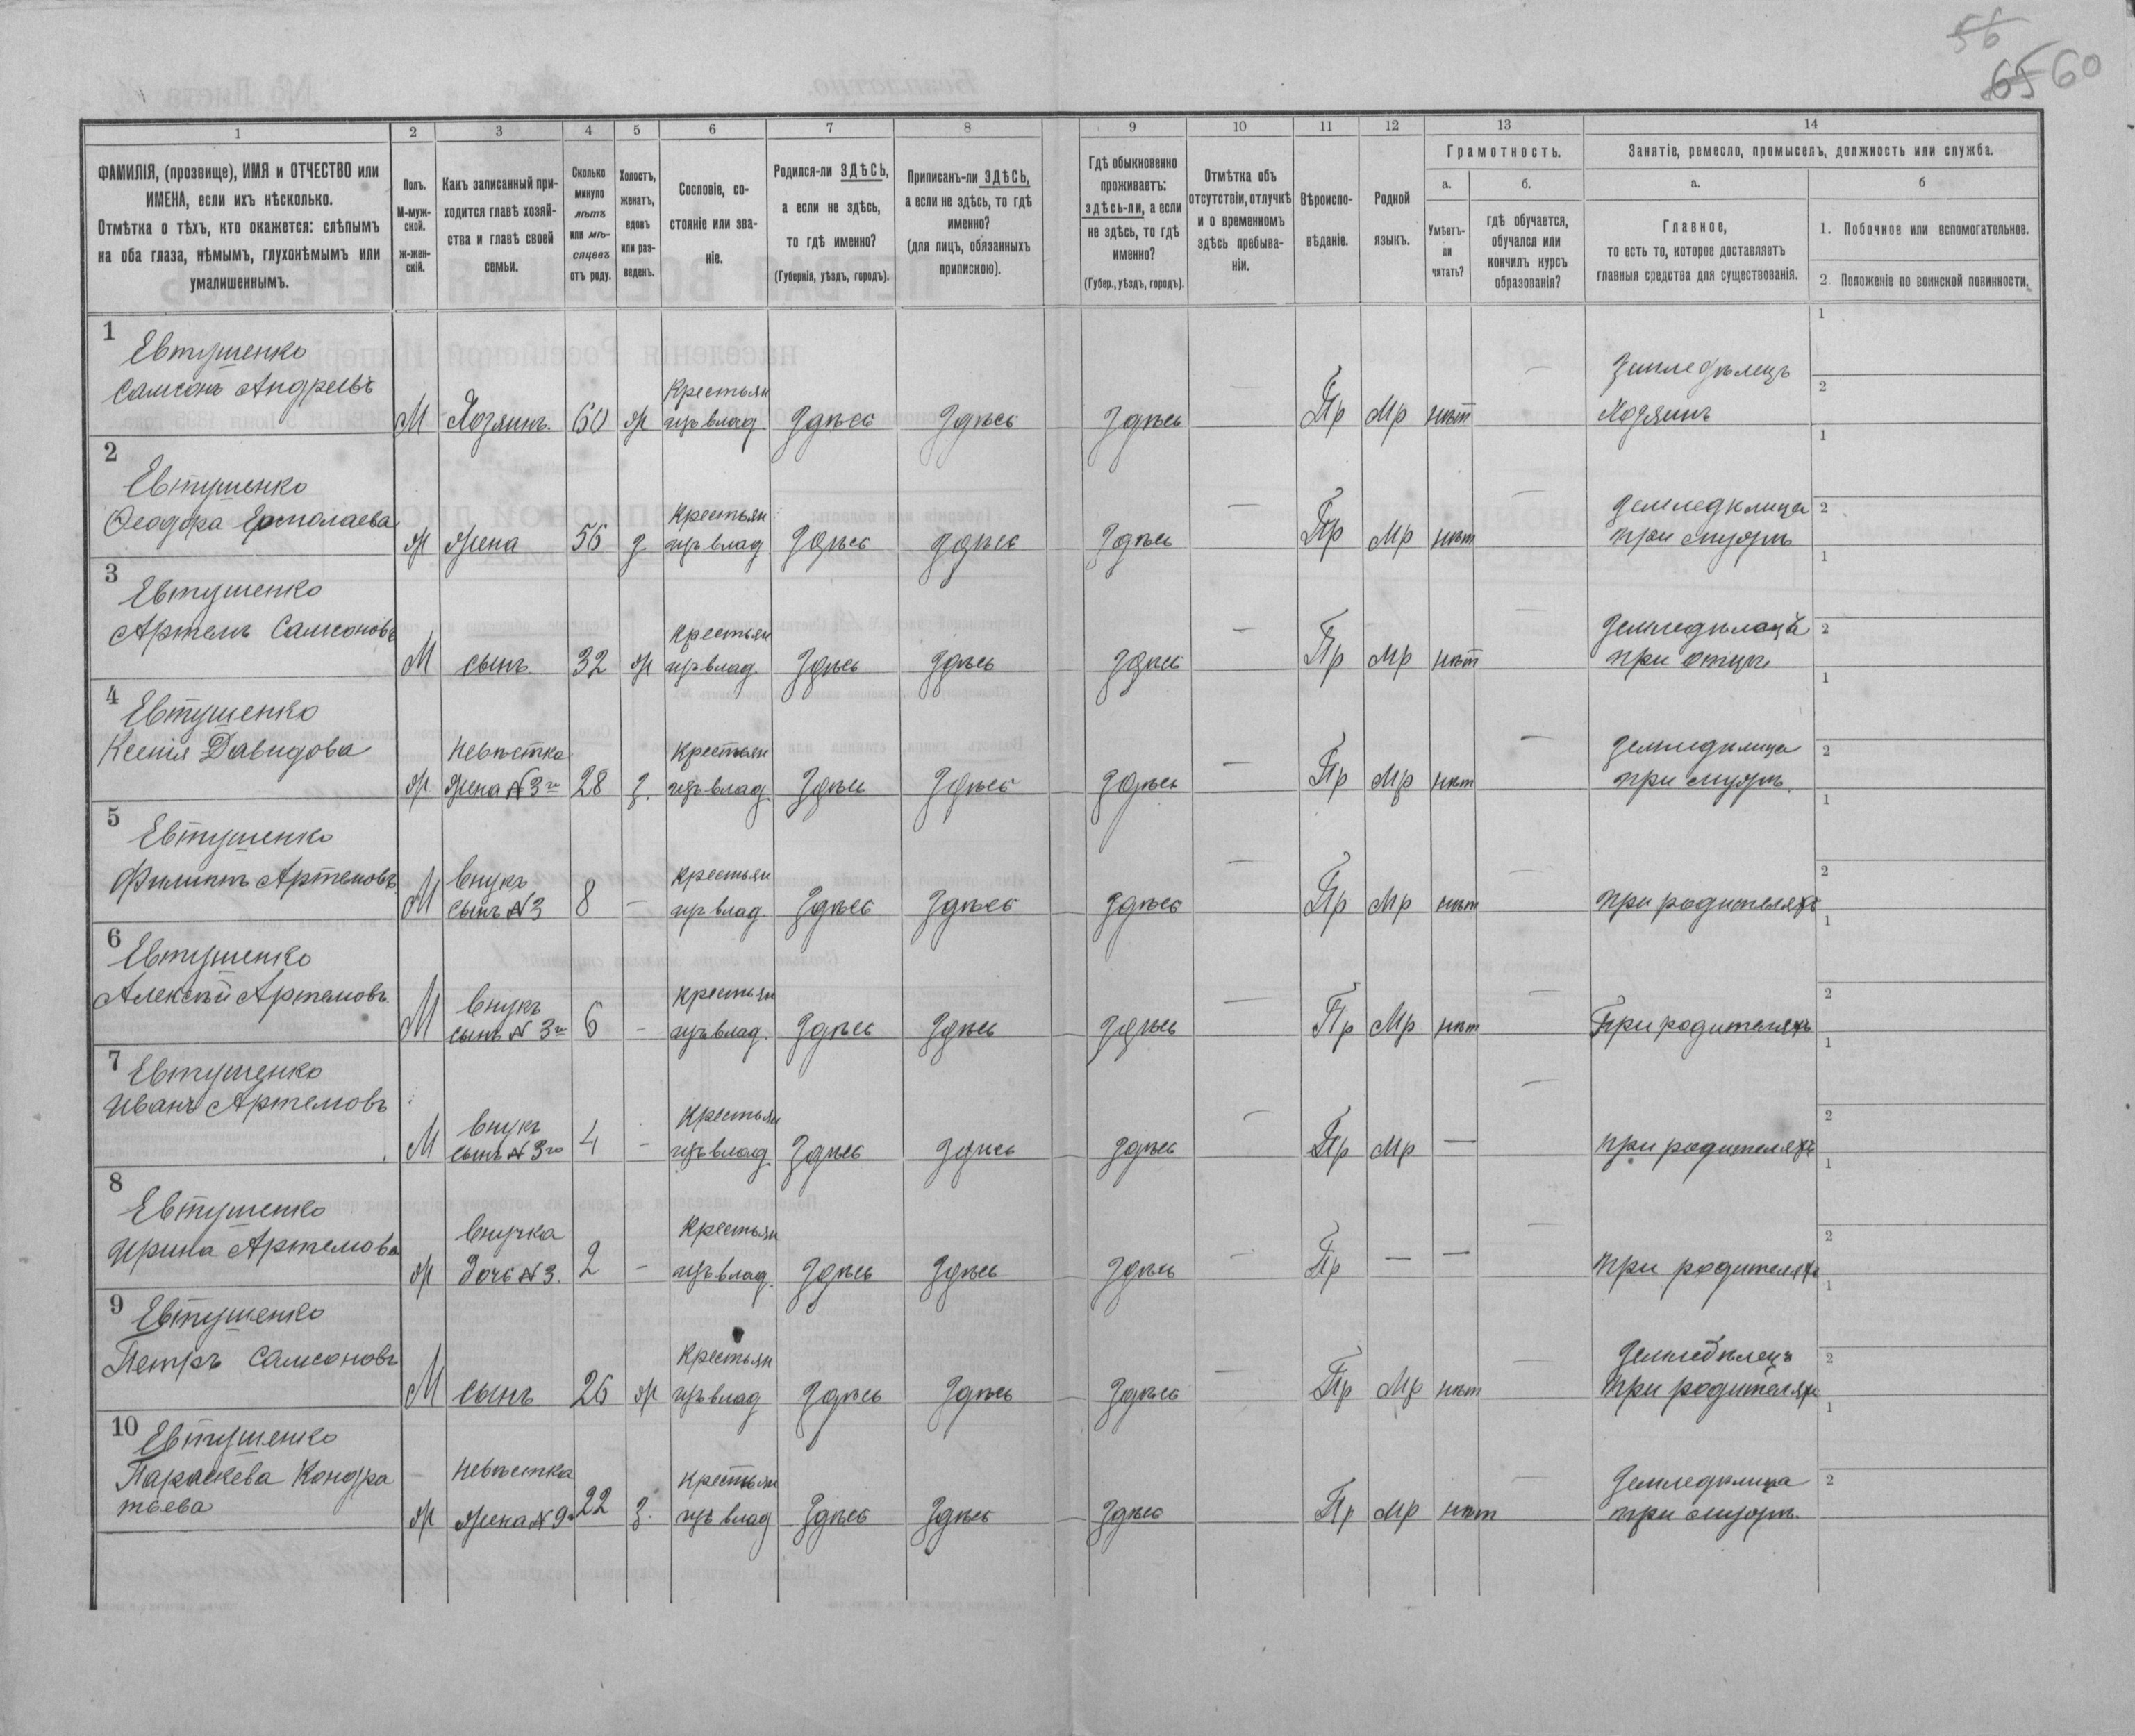 56
65 60
1 2 3 4 5 6 7 8 9 10 11 12 13 14
ФАМИЛІЯ, (прозвище), ИМЯ и ОТЧЕСТВО или
ИМЕНА, если ихъ нѣсколько.
Отмѣтка о тѣхъ, кто окажется: слѣпымъ
на оба глаза, нѣмымъ, глухонѣмымъ или
умалишеннымъ.
Полъ.
М-муж-
ской.
ж-жен-
скій.
Какъ записанный при-
ходится главѣ хозяй-
ства и главѣ своей
семьи.
Сколько
минуло
лѣтъ
или мѣ-
сяцевъ
отъ роду.
Холостъ,
женатъ,
вдовъ
или раз-
веденъ.
Сословіе, со-
стояніе или зва-
ніе.
Родился-ли ЗДѢСЬ,
а если не здѣсь,
то гдѣ именно?
(Губернія, уѣздъ, городъ).
Приписанъ-ли ЗДѢСЬ,
а если не здѣсь, то гдѣ
именно?
(для лицъ, обязанныхъ
припискою).
Гдѣ обыкновенно
проживаетъ:
здѣсь-ли, а если
не здѣсь, то гдѣ
именно?
(Губер., уѣздъ, городъ).
Отмѣтка объ
отсутствіи, отлучкѣ
и о временномъ
здѣсь пребыва-
ніи.
Вѣроиспо-
вѣданіе.
Родной
языкъ.
Грамотность.
а.
Умѣетъ-
ли
читать?
б.
гдѣ обучается,
обучался или
кончилъ курсъ
образованія?
Занятіе, ремесло, промыселъ, должность или служба.
а.
Главное,
то есть то, которое доставляетъ
главныя средства для существованія.
б
1. Побочное или вспомогательное.
2 Положеніе по воинской повинности.
1
Евтушенко
Самсонъ Андреевъ
М Хозяинъ. 60 ж
Крестьян
изъ влад.
Здѣсь Здѣсь Здѣсь — Пр Мр нѣт —
Земледѣлецъ
Хозяинъ
1
2
2
Евтушенко
Ѳеодора Ермолаева
ж жена 56 з.
Крестьян
изъ влад
Здѣсь Здѣсь Здѣсь — Пр Мр нѣт —
Земледѣлица
при мужѣ
1
2
3
Евтушенко
Артемъ Самсоновъ
М сынъ 32 ж
Крестьян
изъ влад.
Здѣсь Здѣсь Здѣсь — Пр Мр нѣт —
при отцѣ
1
2
4
Евтушенко
Ксенія Давидова
ж
Невѣстка
жена №3го
28 з.
Крестьян
изъ влад
Здѣсь Здѣсь Здѣсь — Пр Мр нѣт —
Земледѣлица
при мужѣ.
1
2
5
Евтушенко
Филипъ Артемовъ
М
внукъ
сынъ №3
8 —
Крестьян
изъ влад.
Здѣсь Здѣсь Здѣсь — Пр Мр нѣт —
при родителяхъ
1
2
6
Евтушенко
Алексѣй Артемовъ.
М
внукъ
сынъ №3го
6 —
Крестьян
изъ влад.
Здѣсь Здѣсь Здѣсь — Пр Мр нѣт —
При родителяхъ
1
2
7
Евтушенко
Иванъ Артемовъ
М
внукъ
сынъ №3го
4 —
Крестьян
изъ влад.
Здѣсь Здѣсь Здѣсь — Пр Мр — —
при родителяхъ
1
2
8
Евтушенко
Ирина Артемова
ж
внучка
дочь №3.
2 —
Крестьян
изъ влад.
Здѣсь Здѣсь Здѣсь — Пр — — —
при родителяхъ
1
2
9
Евтушенко
Петръ Самсоновъ
М сынъ 26 ж
Крестьян
изъ влад
Здѣсь Здѣсь Здѣсь — Пр Мр нѣт —
Земледѣлецъ
при родителях
1
2
10
Евтушенко
Параскева Кондра
тьева
ж
невѣстка
жена №9
22 з.
Крестьян
изъ влад
Здѣсь Здѣсь Здѣсь Пр Мр нѣт —
Земледѣлица
при мужѣ.
1
2